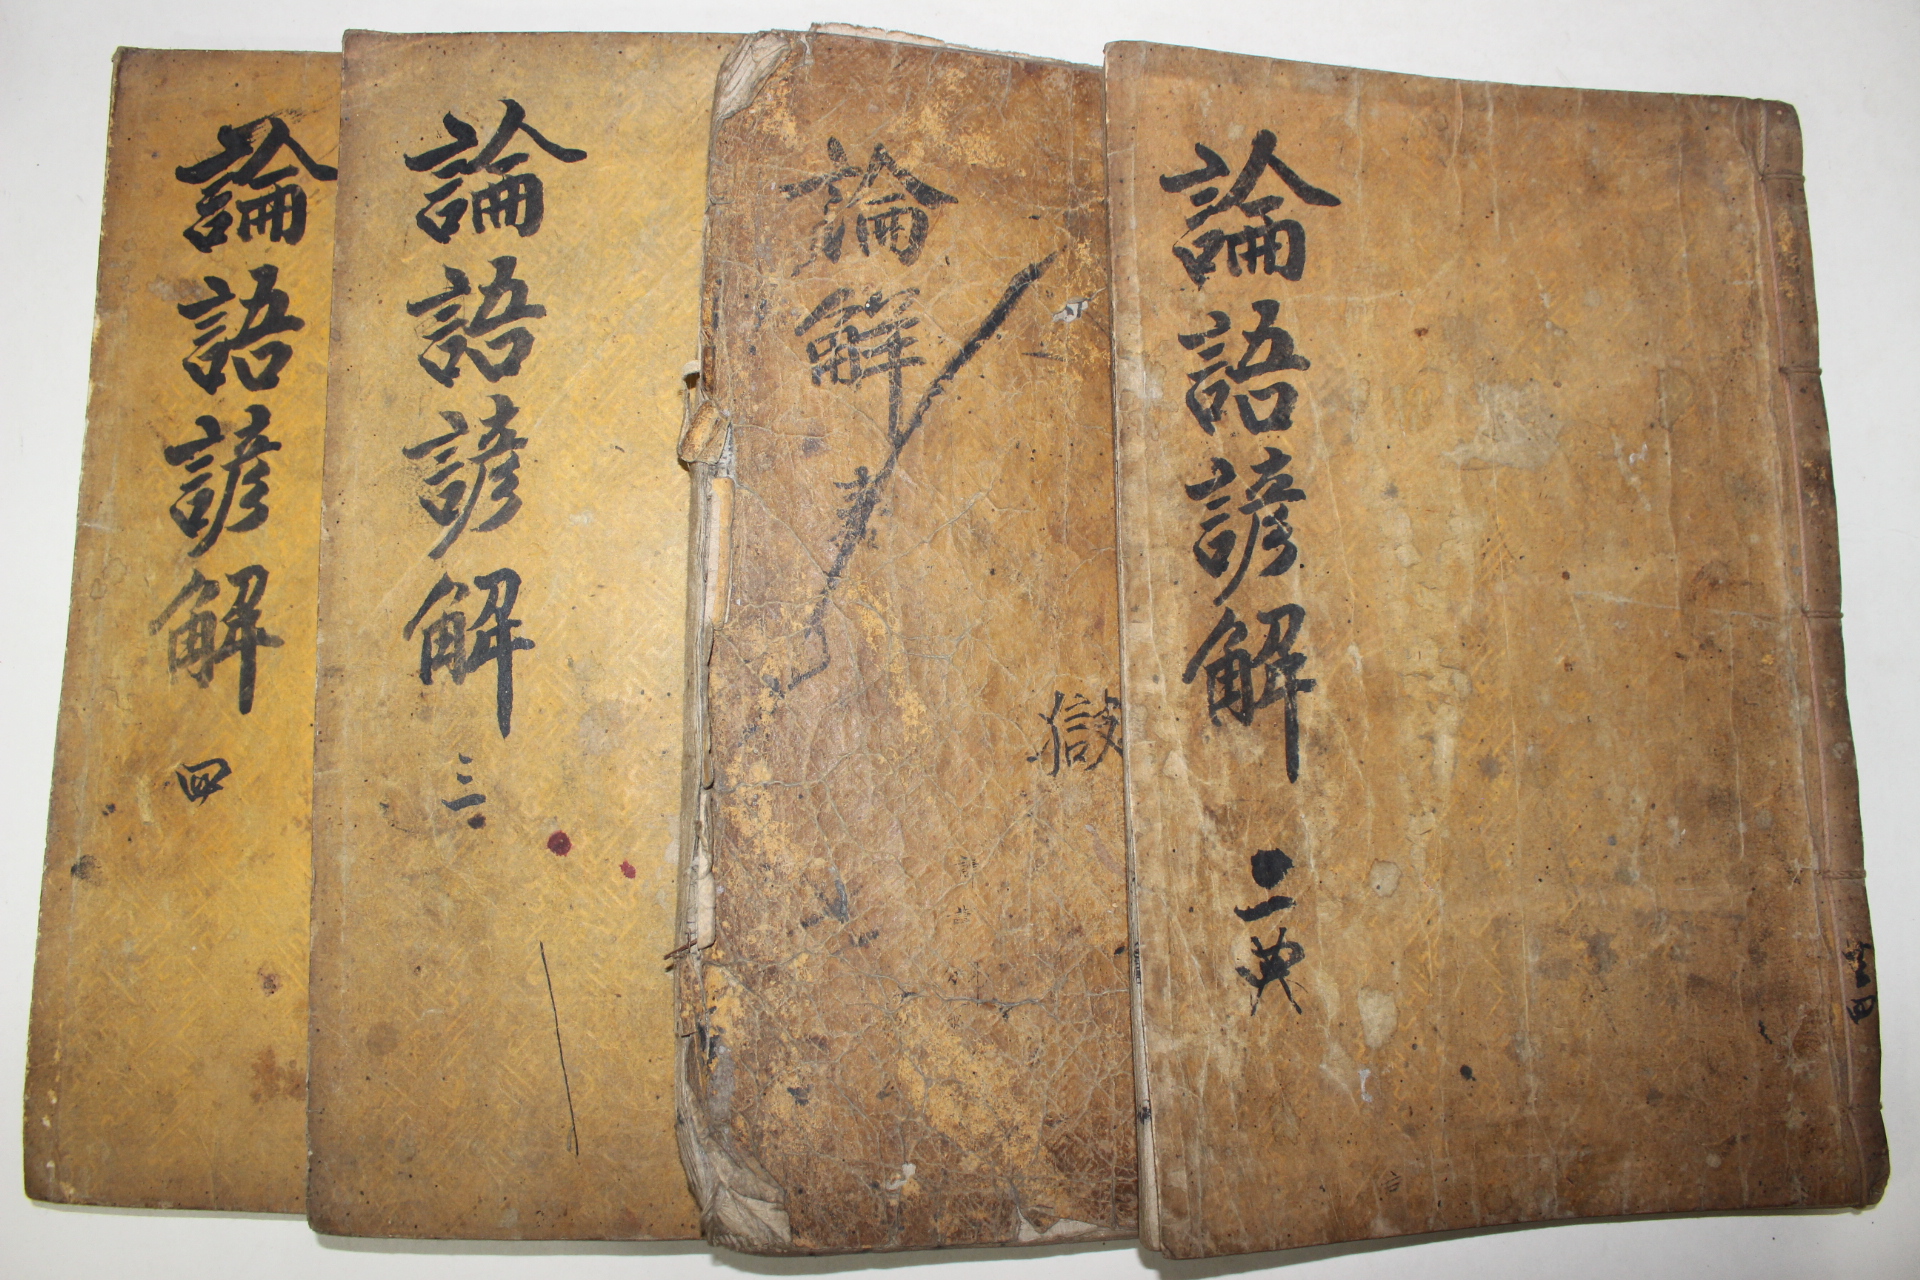 論語諺解
二
典
論解
論語諺解
三
論語諺解
四